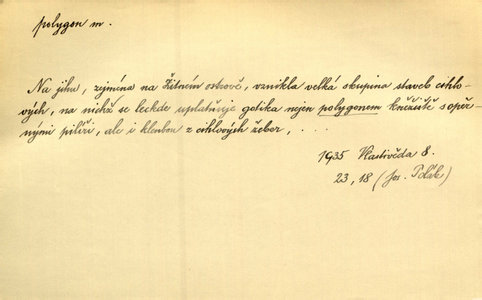 polygon m.
Na jihu, zejména na Žitném ostrově, vznikla velká skupina staveb cihlo-
vých, na nichž se leckde uplatňuje gotika nejen polygonem kněžiště s opěr-
nými pilíři, ale i klenbou z cihlových žeber, . . .
1935 Vlastivěda 8.
23, 18 (Jos. Polák)